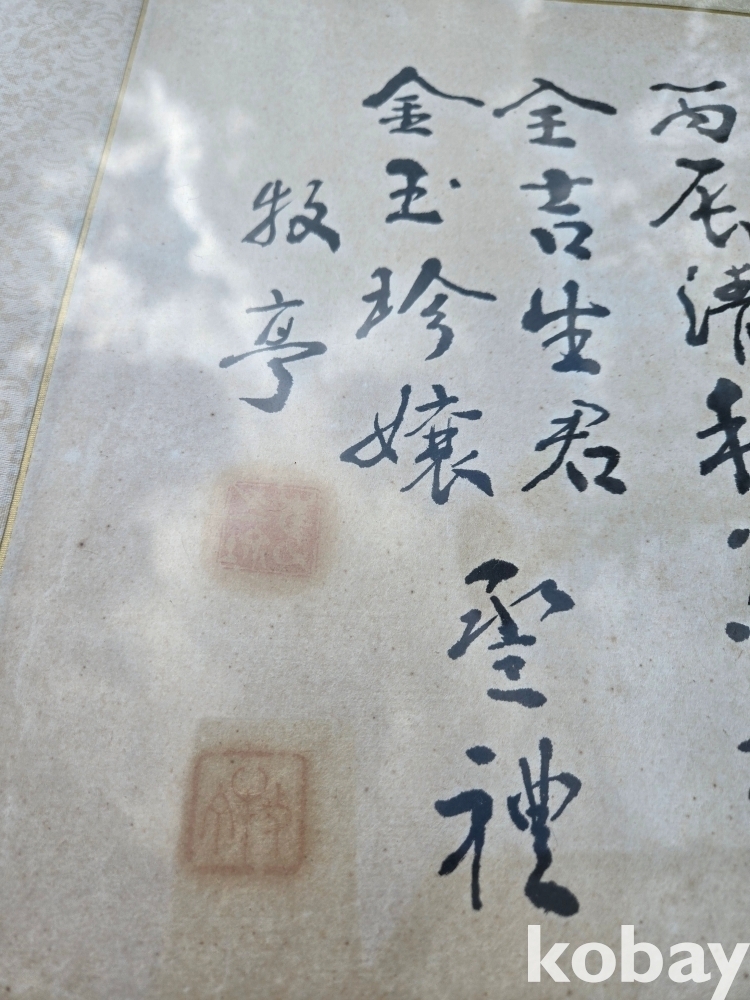 丙辰清
全吉生君
金玉珍孃
聖禮
牧亭
kobay